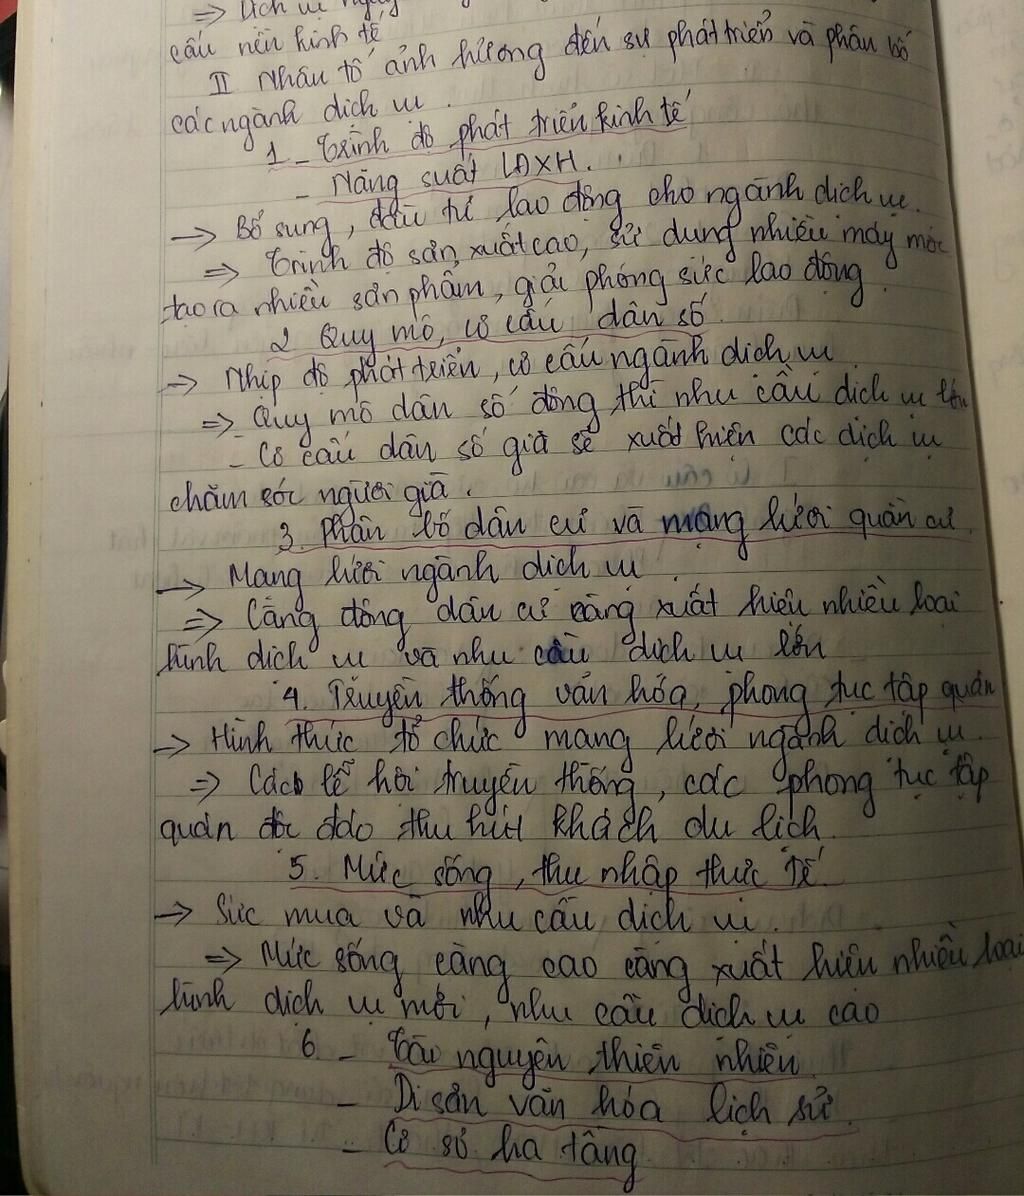 => Dịch vụ
cấu nền kinh tế
II Nhân tố ảnh hưởng đến sự phát triển và phân bố
các ngành dịch vụ.
1 - Trình độ phát triển kinh tế
- Năng suất LĐXH.
-> Bổ sung, đầu tư lao động cho ngành dịch vụ.
=> Trình độ sản xuất cao, sử dụng nhiều máy móc
tạo ra nhiều sản phẩm, giải phóng sức lao động.
2 Quy mô, cơ cấu dân số.
-> Nhịp độ phát triển, cơ cấu ngành dịch vụ
=> Quy mô dân số đông thì nhu cầu dịch vụ lớn
- Cơ cấu dân số già sẽ xuất hiện các dịch vụ
chăm sóc người già.
3. Phân bố dân cư và mạng lưới quần cư
-> Mạng lưới ngành dịch vụ.
=> Càng đông dân cư càng xuất hiện nhiều loại
hình dịch vụ và nhu cầu dịch vụ lớn
4. Truyền thống văn hóa, phong tục tập quán
-> Hình thức tổ chức mạng lưới ngành dịch vụ.
=> Các lễ hội truyền thống, các phong tục tập
quán độc đáo thu hút khách du lịch.
5. Mức sống, thu nhập thực tế.
-> Sức mua và nhu cầu dịch vụ.
=> Mức sống càng cao càng xuất hiện nhiều loại
hình dịch vụ mới, nhu cầu dịch vụ cao
6 - Tài nguyên thiên nhiên
- Di sản văn hóa lịch sử.
- Cơ sở hạ tầng